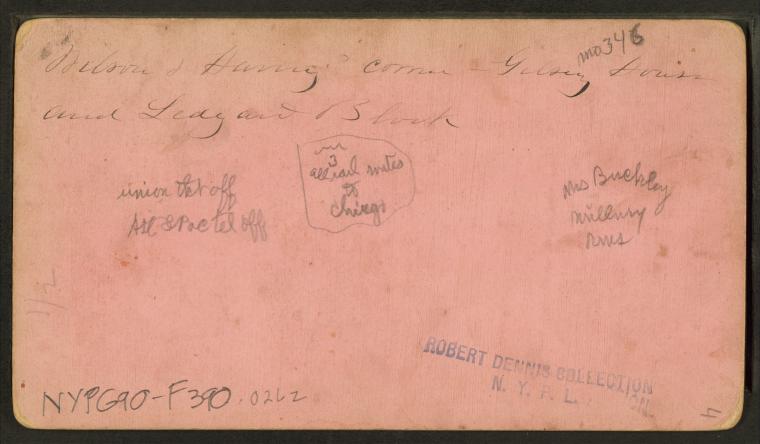 mo346
Wilson & Harvey's corner - Gilsey House
and Ledyard Block
union tkt off
Atl & Pac tel off
3
all rail routes
to
Chicago
Mrs Buckley
Millinery
Rms
1/2
ROBERT DENNIS COLLECTION
N. Y. P. L.
NYPG90-F390.0262
4